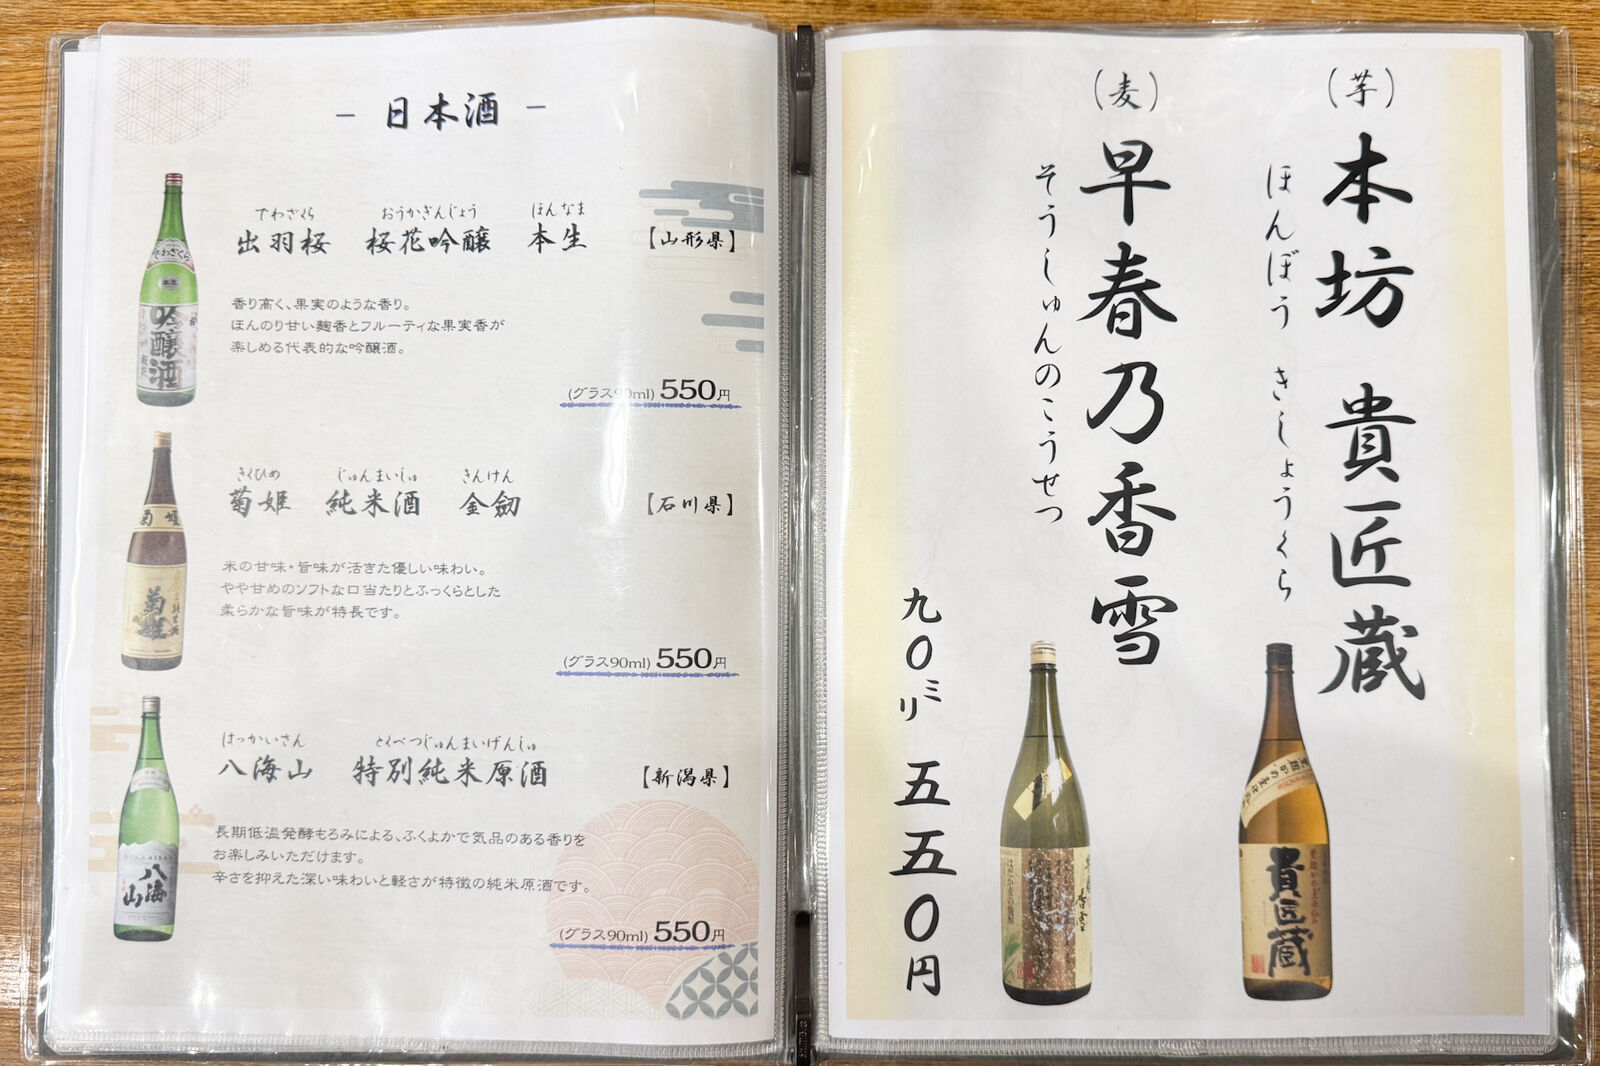 － 日本酒 －
でわざくら おうかぎんじょう ほんなま
出羽桜 桜花吟醸 本生 【山形県】
香り高く、果実のような香り。
ほんのり甘い麹香とフルーティな果実香が
楽しめる代表的な吟醸酒。
(グラス90ml) 550円
でわざくら
本生
吟醸酒
桜花
きくひめ じゅんまいしゅ きんけん
菊姫 純米酒 金劔 【石川県】
米の甘味・旨味が活きた優しい味わい。
やや甘めのソフトな口当たりとふっくらとした
柔らかな旨味が特長です。
(グラス90ml) 550円
菊姫
菊姫
はっかいさん とくべつじゅんまいげんしゅ
八海山 特別純米原酒 【新潟県】
長期低温発酵もろみによる、ふくよかで気品のある香りを
お楽しみいただけます。
辛さを抑えた深い味わいと軽さが特徴の純米原酒です。
(グラス90ml) 550円
HAKKAISAN
八海山
(芋) 本坊 貴匠蔵
ほんぼう きしょうくら
(麦) 早春乃香雪
そうしゅんのこうせつ
九〇ミリ 五五〇円
はだか麦の焼酎
香雪
貴匠蔵